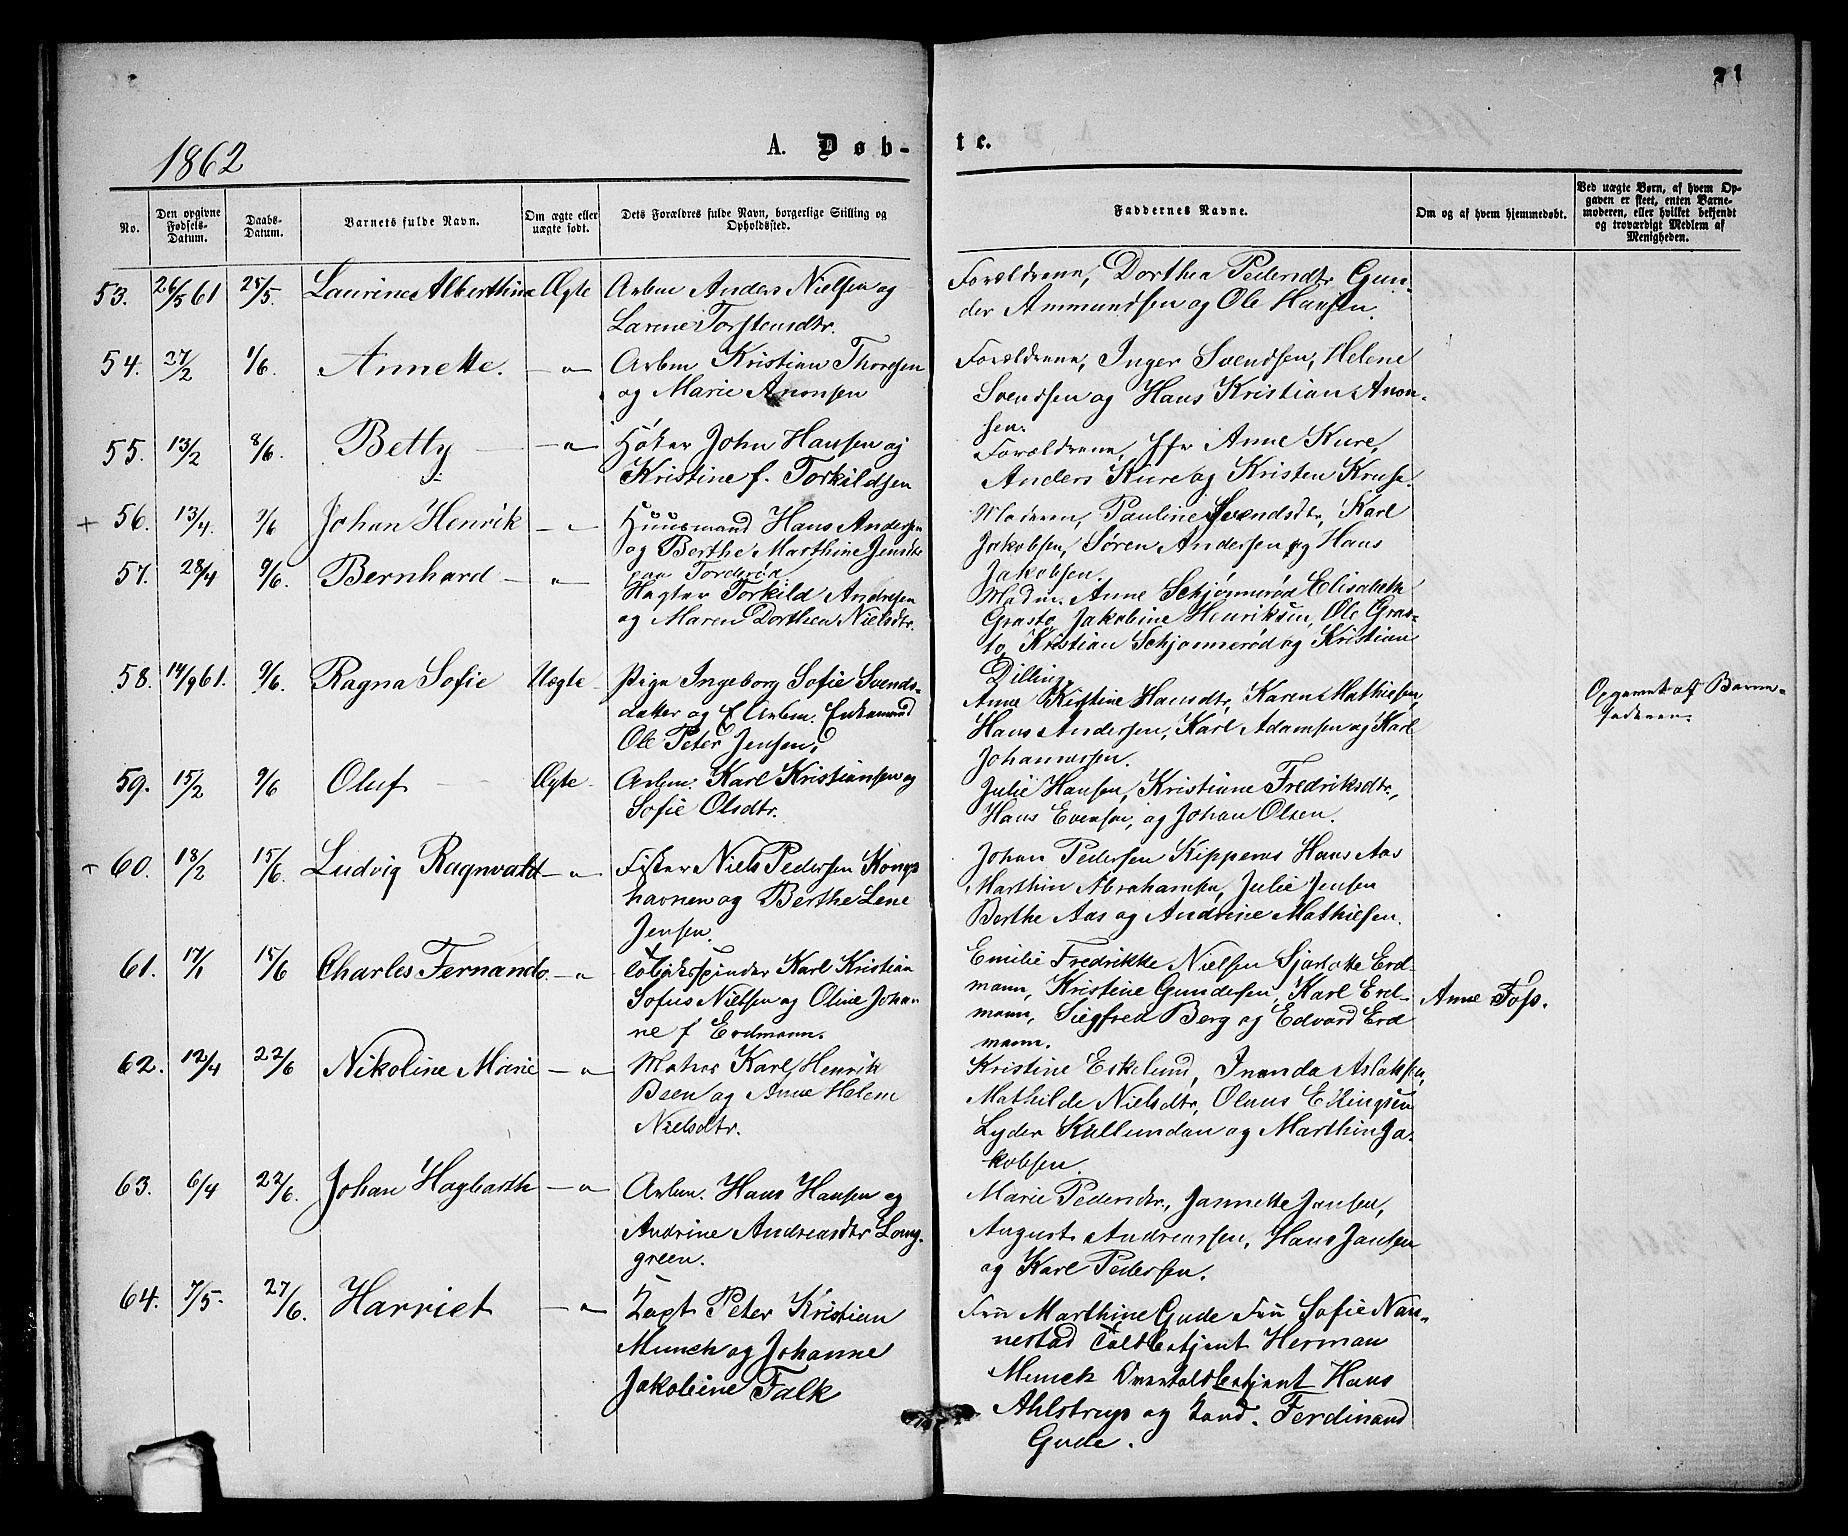 71
1862
A. Døb-
te.
No.
Den opgivne Fødsels-Datum.
Daabs-Datum.
Barnets fulde Navn.
Om ægte eller uægte født.
Dets Forældres fulde Navn, borgerlige Stilling og Opholdssted.
Faddernes Navne.
Om og af hvem hjemmedøbt.
Ved uægte Børn, af hvem Op-
gaven er skeet, enten Barne-
moderen, eller hvilket bekjendt
og troværdigt Medlem af
Menigheden.
53. 26/5 61 25/5. Laurine Alberthine Ægte Arbm Anders Nielsen og
Larine Torstensdtr.
Forældrene, Dorthea Pedersdtr Gun-
der Ammundsen og Ole Hansen.
54. 27/2 1/6. Annette. — " — Arbm Kristian Thoresen
og Marie Anonsen
Forældrene, Inger Svendsen, Helene
Svendsen og Hans Kristian Anon-
sen.
55. 13/2 8/6. Betty — " — Høker John Hansen og
Kristine f. Torkildsen
Forældrene, Jfr Anne Kure,
Anders Kure og Kristen Kruse.
+ 56. 13/4. 9/6 Johan Henrik — " — Huusmand Hans Andersen
og Berthe Marthine Jensdtr
paa Torderød.
Moderen, Pauline Svendsdtr, Karl
Jakobsen, Søren Andersen og Hans
Jakobsen.
57. 28/4 9/6. Bernhard — " — Hagter Torkild Andresen
og Maren Dorthea Nielsdtr.
Madm. Anne Schjønnerød Elisabeth
Grasto, Jakobine Henriksen, Ole Gras-
to, Kristian Schjønnerød og Kristian
Dilling.
58. 14/9 61. 9/6. Ragna Sofie Uægte Pige Ingeborg Sofie Svends-
datter og Arbm. Enkemand
Ole Peter Jensen,
Anne Kirstine Hansdtr, Karen Mathiesen,
Hans Andersen, Karl Adamsen og Karl
Johannessen.
Opgivet af Barne-
faderen.
59. 15/2 9/6 Oluf Ægte Arbm. Karl Kristiansen og
Sofie Olsdtr.
Julie Hansen, Kristiane Fredriksdtr,
Hans Evensen, og Johan Olsen.
+ 60. 18/2 15/6. Ludvig Ragnvald — " — Fisker Niels Pedersen Kongs
havnen og Berthe Lene
Jensen.
Johan Pedersen Kipperus Hans Aas
Marthin Abrahamsen, Julie Jensen
Berthe Aas og Andrine Mathiesen.
61. 17/1 15/6 Charles Fernando — " — Tobaksspinder Karl Kristian
Sofus Nielsen og Oline Johan
ne f Erdmann.
Emilie Fredrikke Nielsen Sjarlotte Erd
mann, Kristine Gundersen, Karl Erd-
mann, Siegfred Berg og Edvard Erd
mann.
Anne Foss.
62. 12/4 22/6 Nikoline Marie — " — Matros Karl Henrik
Been og Anne Helene
Nielsdtr.
Kristine Eskelund, Inanda Aslaksen,
Mathilde Nielsdtr, Olaus Ellingsen
Lyder Kullundan og Marthin Ja-
kobsen.
63. 6/4 22/6. Johan Hagbarth — " — Arbm. Hans Hansen og
Andrine Andreasdtr Long-
green.
Marie Pedersdtr, Jannette Jansen,
August Andreassen, Hans Jansen
og Karl Pedersen.
64. 7/5. 27/6. Harriet — " — Kapt Peter Kristian
Munch og Johanne
Jakobine Falk
Fru Marthine Gude Fru Sofie Nan-
nestad Toldbetjent Herman
Munch Overtoldbetjent Hans
Ahlstrup og Kand. Ferdinand
Gude.